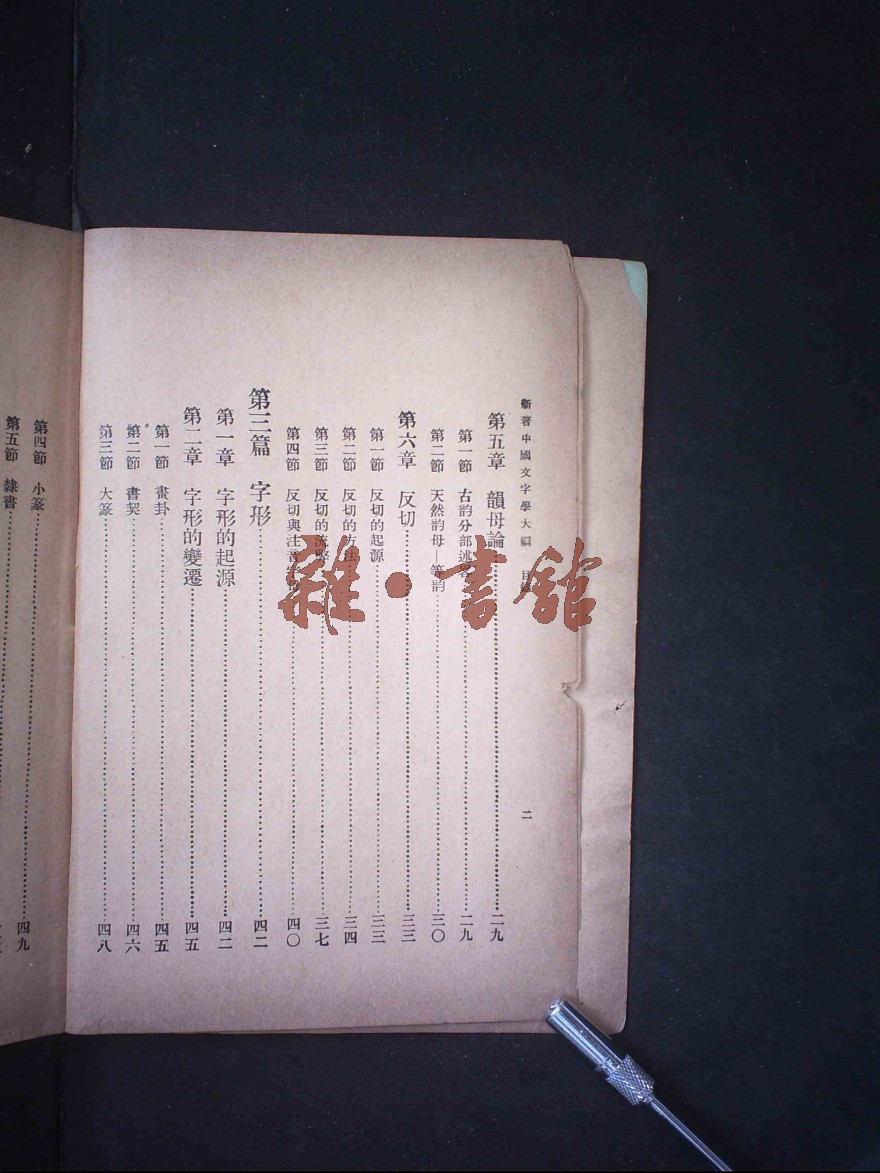 新著中國文字學大綱 目錄 二
第五章 韻母論……二九
第一節 古韵分部述……二九
第二節 天然韵母—等韵……三〇
第六章 反切……三三
第一節 反切的起源……三三
第二節 反切的方法……三四
第三節 反切的流弊……三七
第四節 反切與注音……四〇
第三篇 字形……四二
第一章 字形的起源……四二
第二章 字形的變遷……四五
第一節 畫卦……四五
第二節 書契……四六
第三節 大篆……四八
第四節 小篆……四九
第五節 隸書……
雜·書館